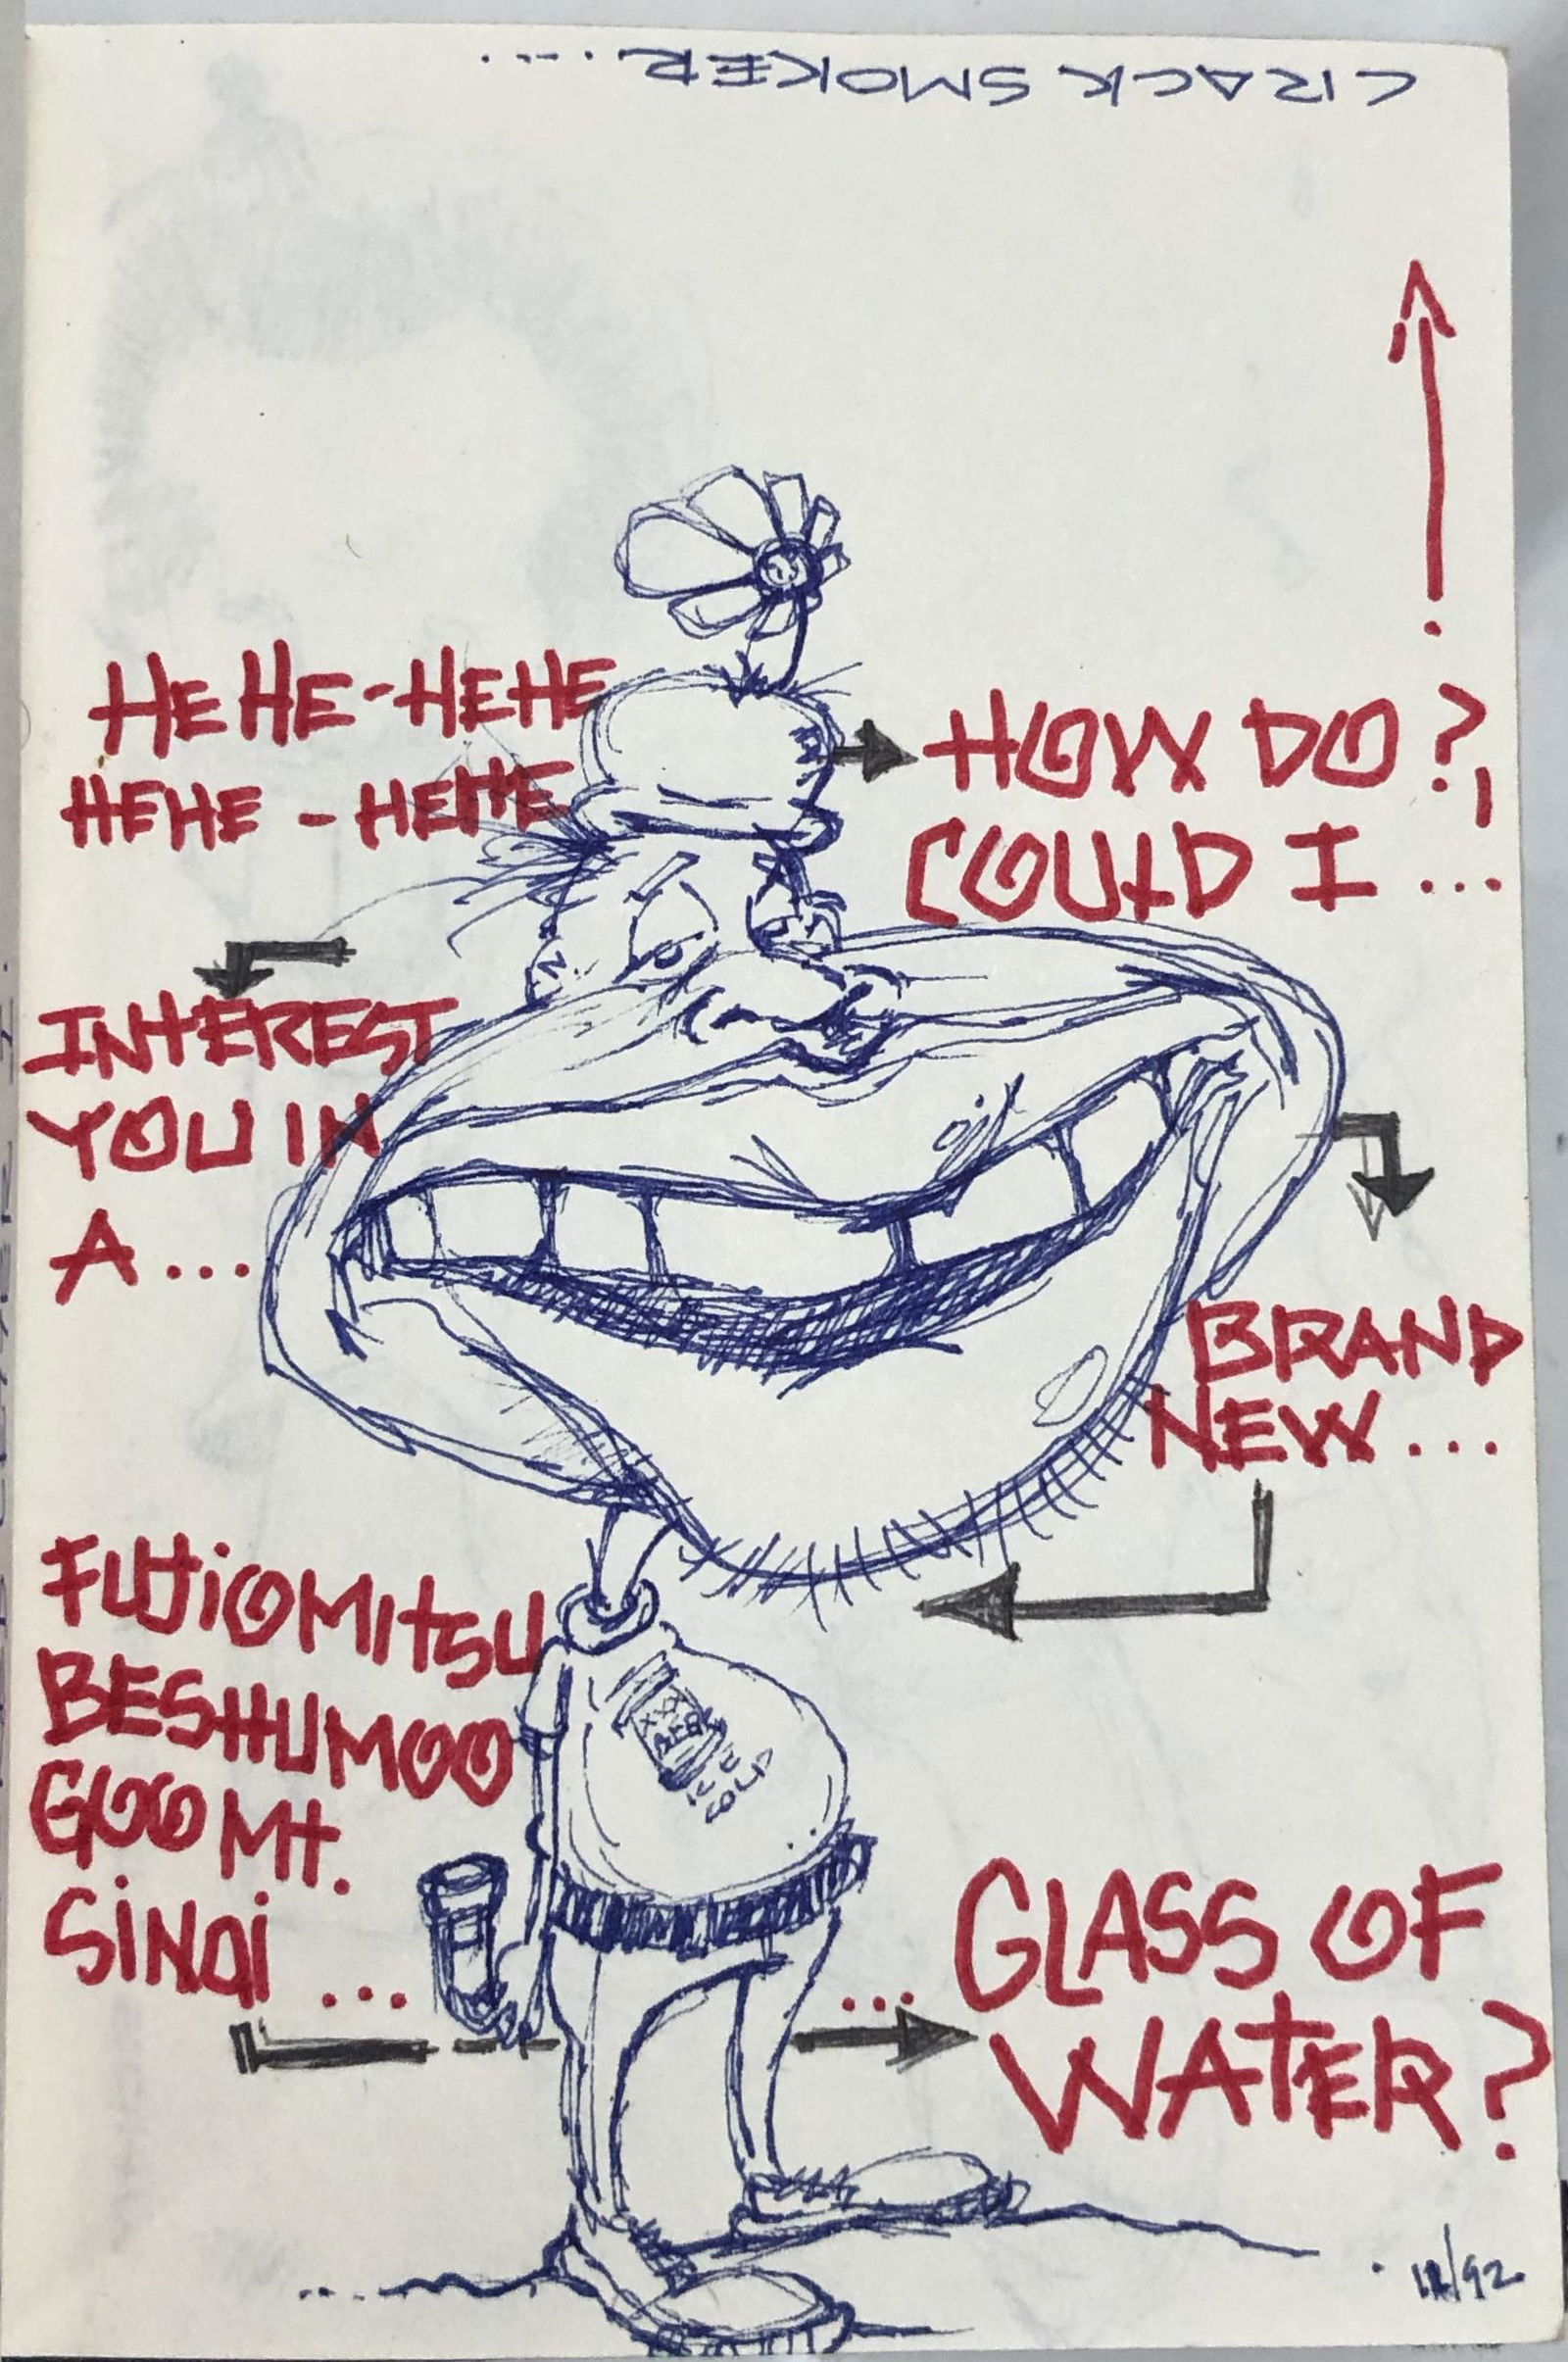 CRACK SMOKER....
HEHE-HEHE
HEHE-HEHE
HOW DO?,
COULD I...
INTEREST
YOU IN
A...
BRAND
NEW...
FUJIOMITSU
BESHUMOO
GOO Mt.
SINAI ...
... GLASS OF
WATER?
XXX
BEER
ICE
COLD
12/92